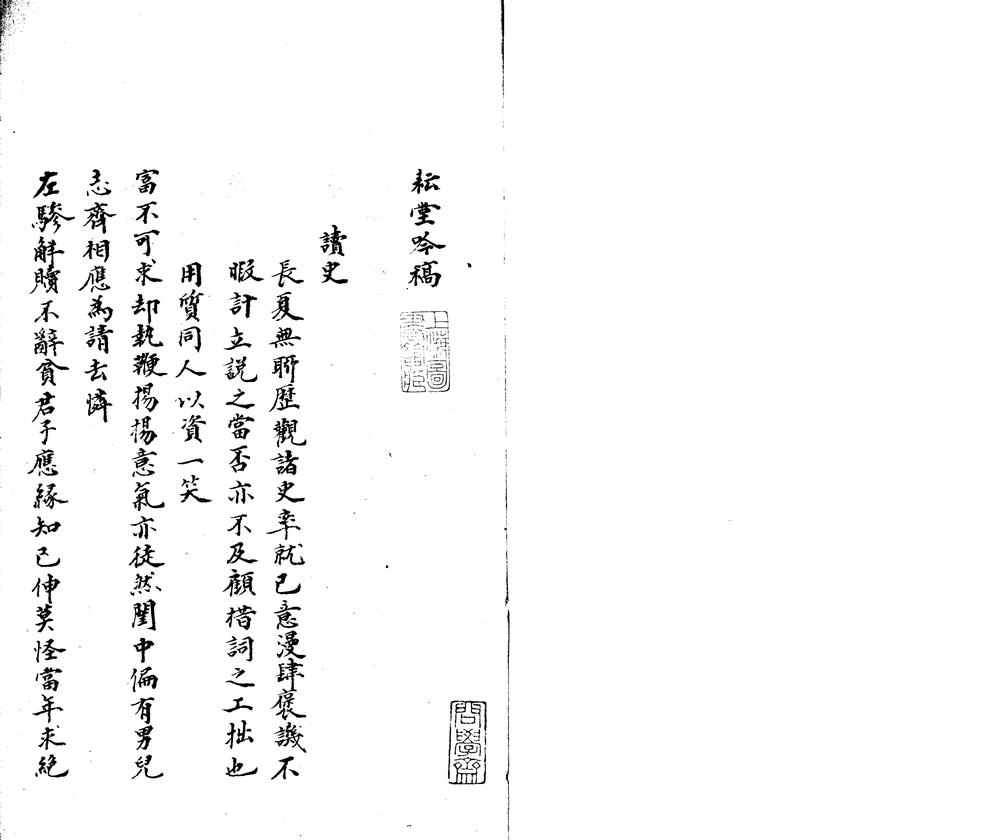 耘堂吟稿
上海圖書館藏
問學齋
讀史
長夏無聊歷觀諸史率就己意漫肆褒譏不
暇計立說之當否亦不及顧措詞之工拙也
用質同人以資一笑
富不可求却執鞭揚揚意氣亦徒然閨中偏有男兒
志齊相應為請去憐
左驂解贖不辭貧君子應緣知己伸莫怪當年求絕